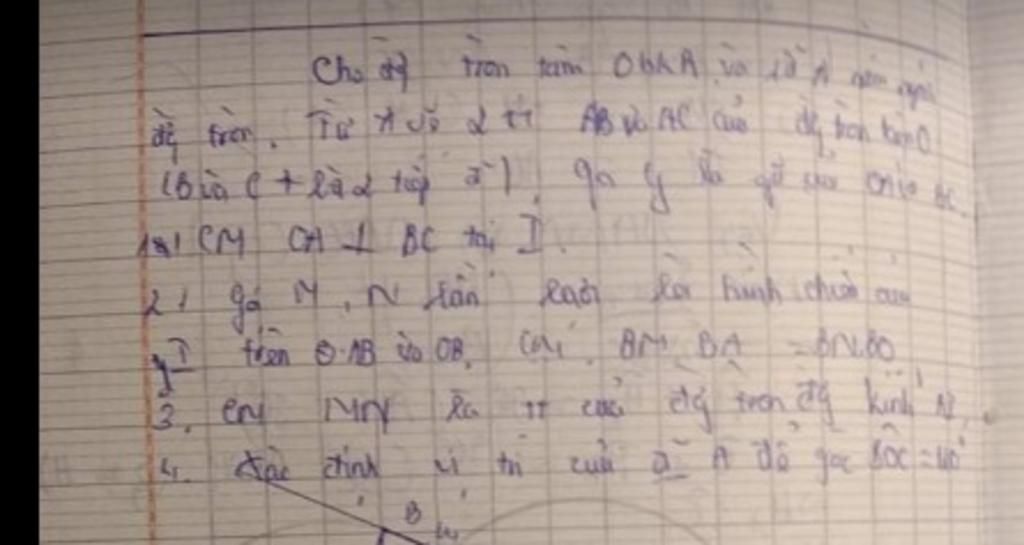 Cho đg tròn tâm O bk R và A nằm ngoài
đg tròn. Từ A vẽ 2 tt AB và AC của đg tròn tâm O
(B và C + là 2 tiếp ). gọi I là của OA và BC.
1 CM OA ⊥ BC tại I.
2 gọi M, N lần lượt là hình chiếu của
I trên AB và OB. BM.BA = BN.BO
3. CM MN là tt của đg tròn đg kính
4. xác định vị trí của A để góc BOC =
B